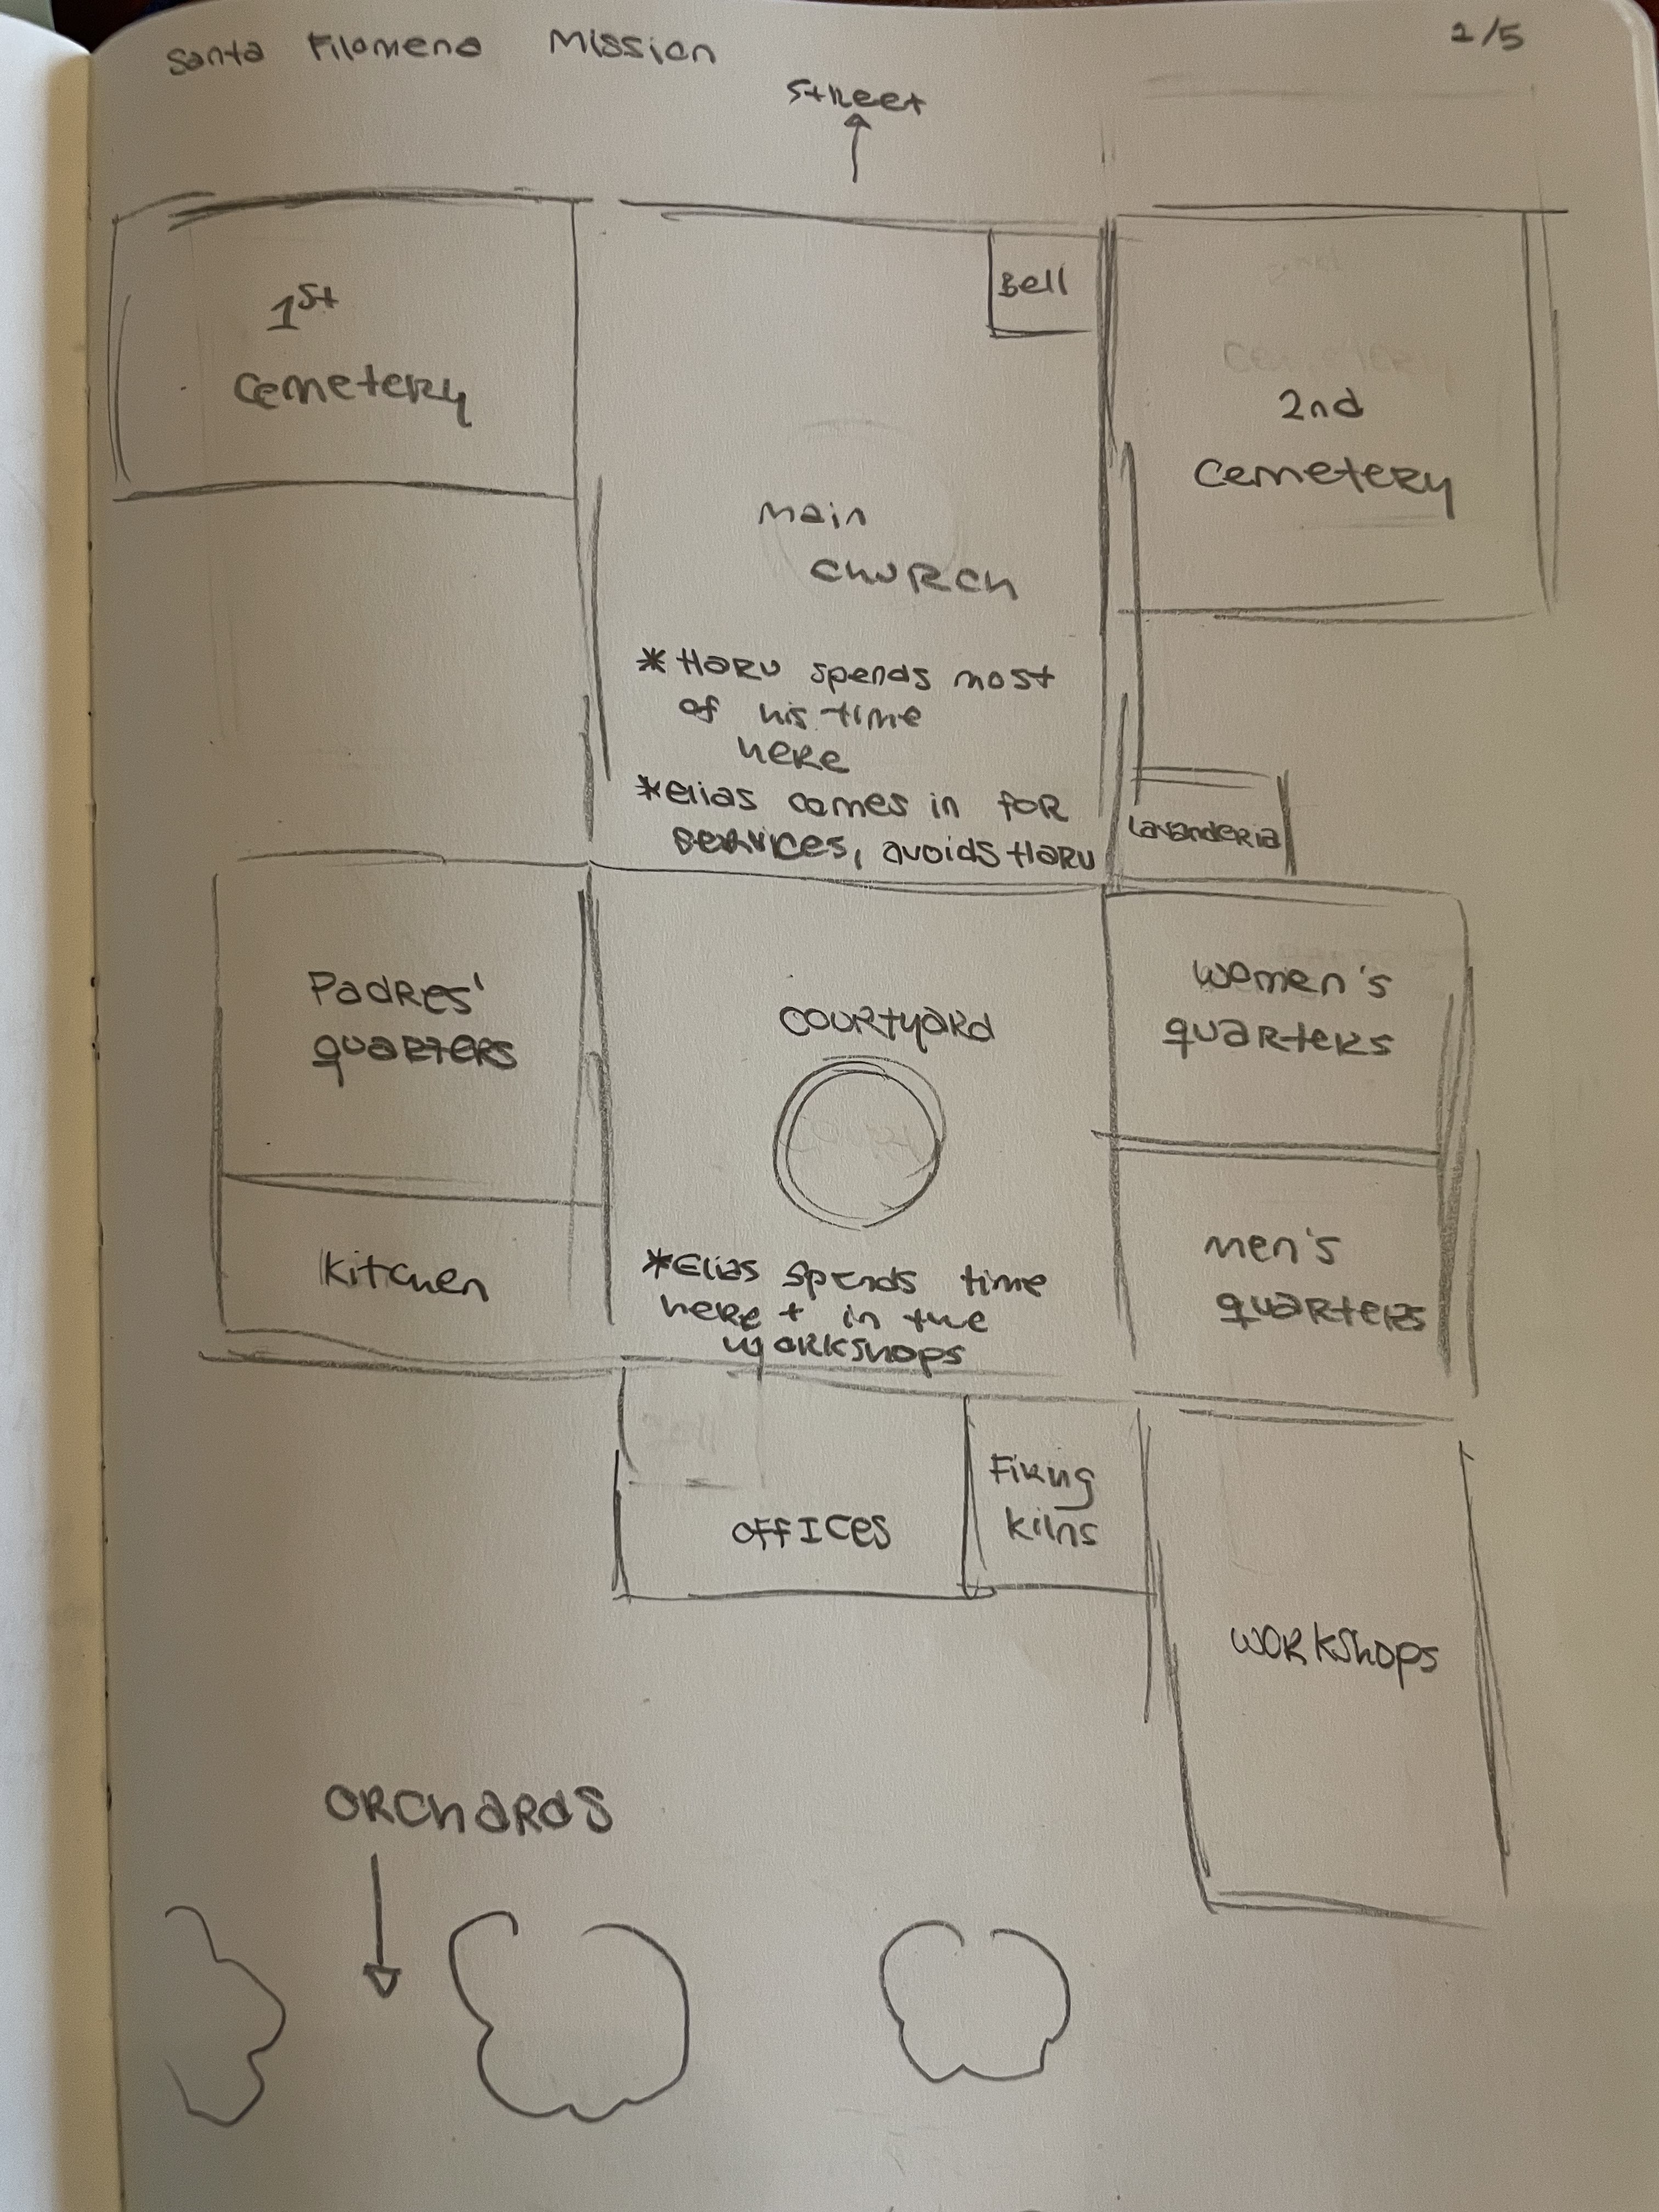 Santa Filomena Mission
2/5
Street
Bell
1st
Cemetery
2nd
Cemetery
Main
Church
*Haru spends most
of his time
here
*Elias comes in for
services, avoids Haru
Lavanderia
Padres'
quarters
Courtyard
Women's
quarters
Kitchen
Men's
quarters
*Elias spends time
here + in the
workshops
Offices
Firing
kilns
Workshops
Orchards